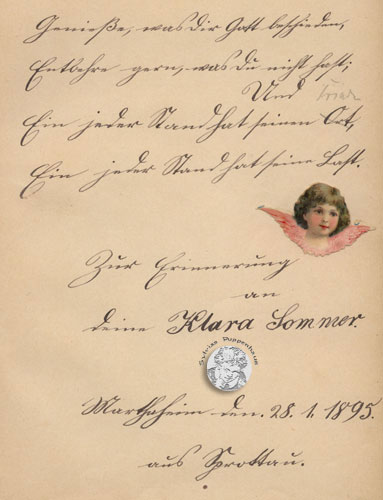 Genieße, was dir Gott beschieden,
Entbehre gern, was du nicht hast;
Und
Ein jeder Stand hat seinen Ort,
Ein jeder Stand hat seine Last.
Zur Erinnerung
an
deine Klara Sommer.
Sylvias Puppenhaus
Marthaheim den. 28. 1. 1895.
aus Sprottau.